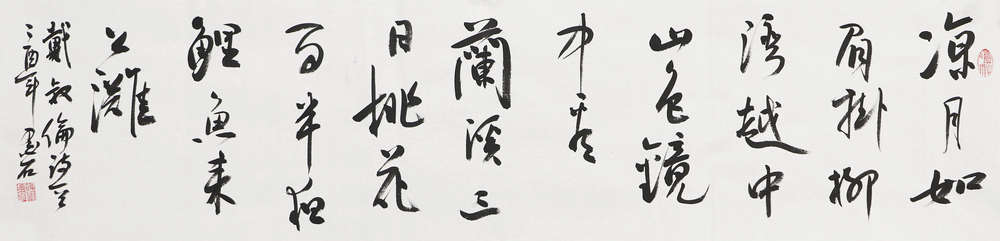 涼月如
眉掛柳
湾越中
山色鏡
中看
蘭溪三
日桃花
雨半夜
鯉魚来
上灘
戴叔倫詩一首
酉年 石